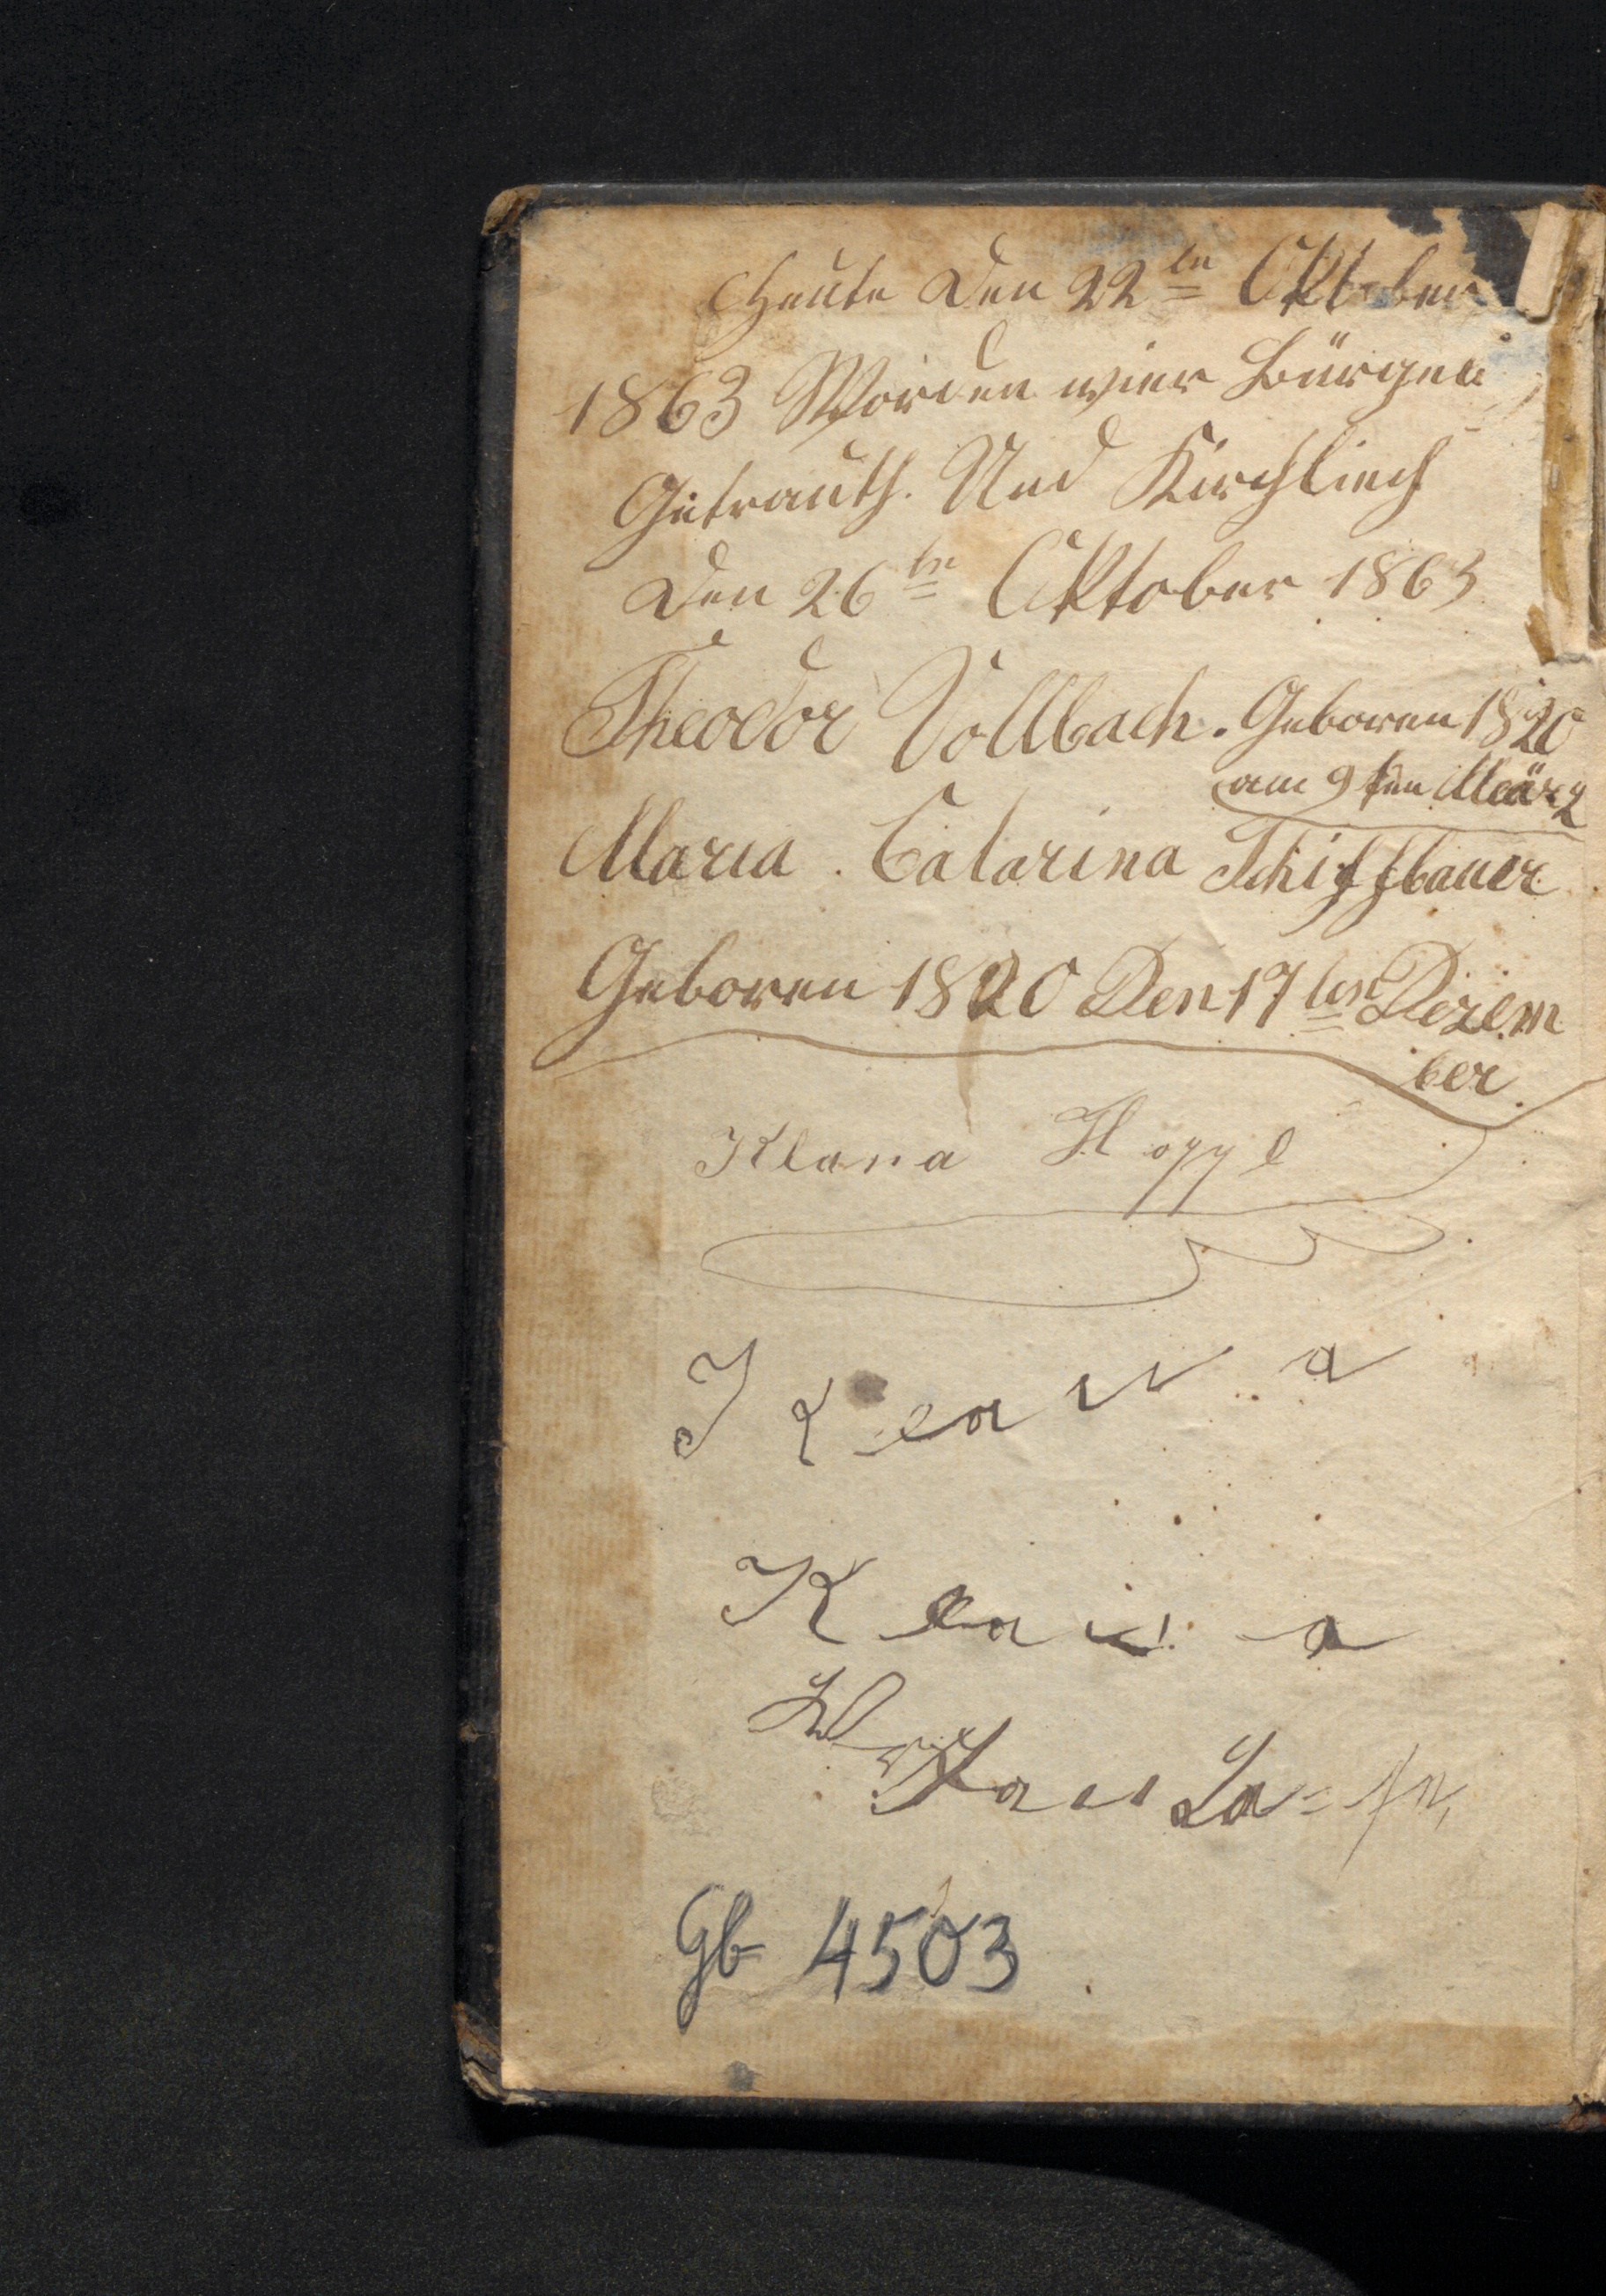 Heute den 22ten Oktober
1863 Worden wier Bürgerl
Getrauth. Und Kirchliech
den 26ten Oktober 1863
Theodor Vollbach. Geboren 1820
am 9ten März
Maria. Catarina Schiffbauer
Geboren 1820 Den 17ten Dezem
ber.
Klara Hoppe
Klara
Klara
Gb 4503